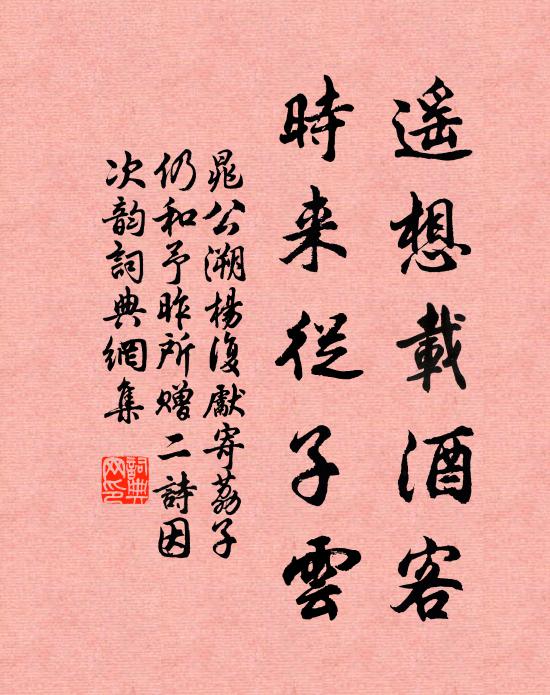 遥想載酒客
時来從子雲
晁公溯楊復獻寄荔子
仍和予昨所贈二詩因
次韵詞典網集
詞典网印